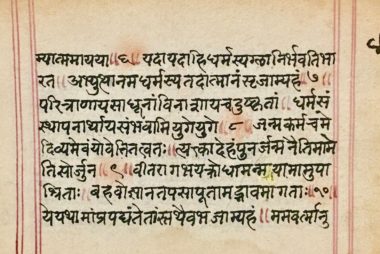 म्यात्ममायया ॥६॥ यदायदाहिधर्मस्यग्लानिर्भवतिभा
रत ॥ अभ्युत्थानमधर्मस्यतदात्मानंसृजाम्यहं ॥७॥
परित्राणायसाधूनांविनाशायचदुष्कृतां ॥ धर्मसं
स्थापनार्थायसंभवामियुगेयुगे ॥८॥ जन्मकर्मचमे
दिव्यमेवंयोवेत्तितत्वतः ॥ त्यक्त्वादेहंपुनर्जन्मनैतिमामे
तिसोर्जुन ॥९॥ वीतरागभयक्रोधामन्मयामामुपा
श्रिताः ॥ बहवोज्ञानतपसापूतामद्भावमागताः ॥१०॥
येयथामांप्रपद्यंतेतांस्तथैवभजाम्यहं ॥ ममवर्त्मानु